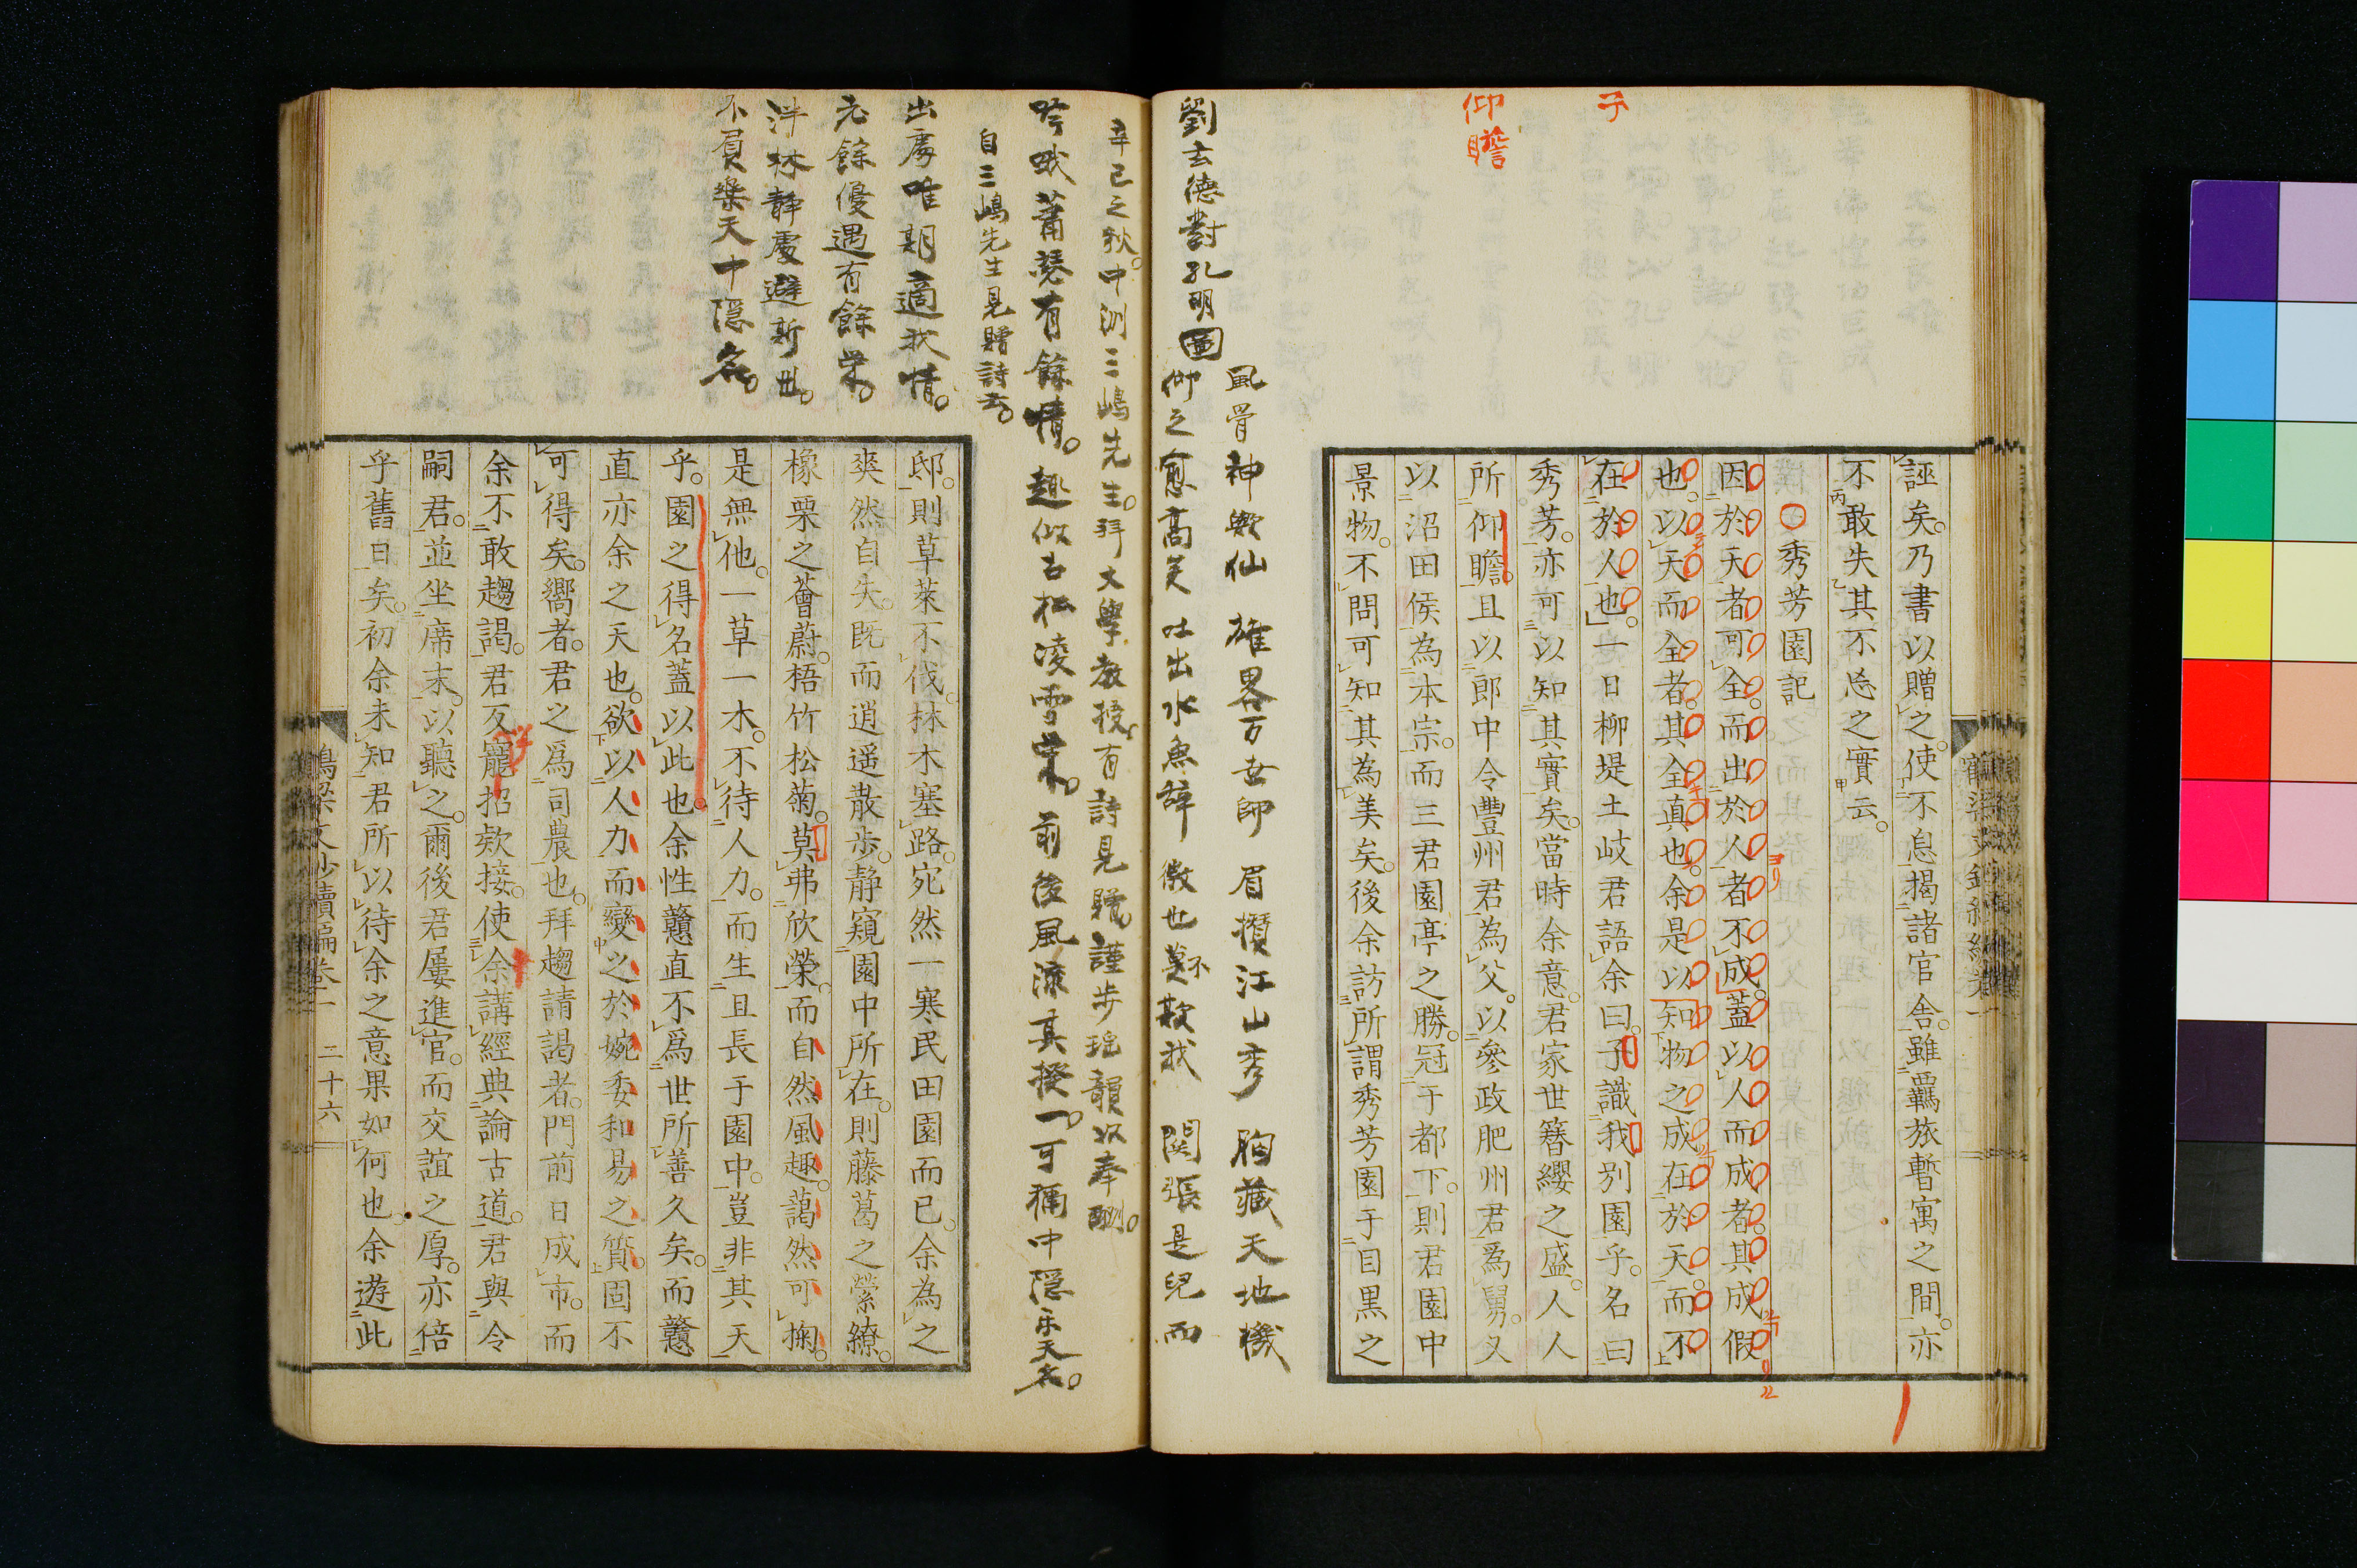 子
仰瞻
誣矣。乃書以贈之。使不息揭諸官舎。雖羈旅暫寓之間。亦
不敢失其不忘之實云。
秀芳園記
因於天者可全。而出於人者不成。蓋以人而成者其成假
也。以天而全者其全真也。余是以知物之成在於天而不
在於人也。一日柳堤土岐君語余曰。子識我別園乎。名曰
秀芳。亦可以知其實矣。當時余意。君家世簪纓之盛。人人
所仰瞻。且以郎中令豐州君為父。以參政肥州君爲舅。又
以沼田侯為本宗。而三君園亭之勝。冠于都下。則君園中
景物。不問可知其為美矣。後余訪所謂秀芳園于目黒之
劉玄德對孔明圖
風骨神歟仙 雄畧万世師 眉攢江山秀 胸藏天地機
仰之愈高矣 吐出水魚辞 微也莫不欺我 関張是兒而
辛巳之秋。中洲三嶋先生。拜大學教授。有詩見贈。謹步瑶韻以奉酬。
吟哦蕭瑟有餘情。趣似古松凌雪榮。前後風流真揆一。可稱中隠樂天名。
自三嶋先生見贈詩云。
出處唯期適我情。
老餘優遇有餘榮。
泮林静處避斯世。
不負樂天中隠名。
邸。則草萊不伐。林木塞路。宛然一寒民田園而已。余為之
爽然自失。既而逍遥散歩。静窺園中所在。則藤葛之縈繚。
橡栗之薈蔚。梧竹松菊。莫弗欣榮。而自然風趣。藹然可掬。
是無他。一草一木。不待人力。而生且長于園中。豈非其天
乎。園之得名蓋以此也。余性戇直不爲世所善久矣。而戇
直亦余之天也。欲以人力而變之於婉委和易之質。固不
可得矣。嚮者。君之爲司農也。拜趨請謁者。門前日成市。而
余不敢趨謁。君反寵招欵接。使余講經典論古道。君與令
嗣君。並坐席末。以聽之。爾後君屢進官。而交誼之厚。亦倍
乎舊日矣。初余未知君所以待余之意果如何也。余遊此
鳥梁文抄續編卷二 二十六